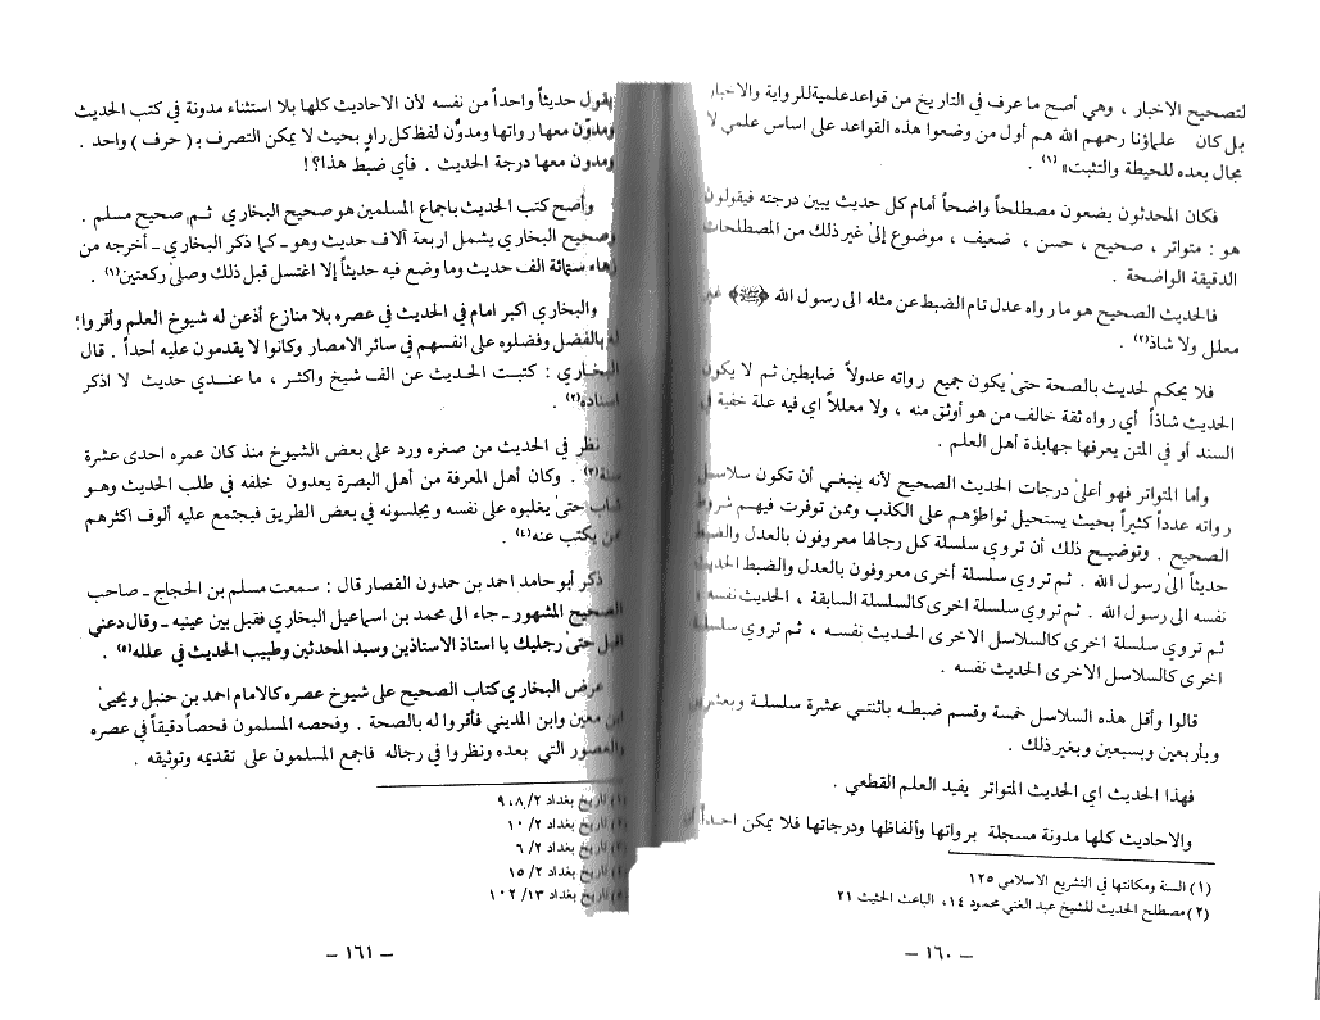 لتصحيح الاخبار ، وهي أصح ما عرف في التاريخ من قواعد علمية للرواية والاخبار
بل كان علماؤنا رحمهم الله هم أول من وضعوا هذه القواعد على اساس علمي لا
مجال بعده للحيطة والتثبت» (١) .
فكان المحدثون يضعون مصطلحاً واضحاً أمام كل حديث يبين درجته فيقولون
هو : متواتر ، صحيح ، حسن ، ضعيف ، موضوع إلىٰ غير ذلك من المصطلحات
الدقيقة الواضحة .
فالحديث الصحيح هو ما رواه عدل تام الضبط عن مثله الى رسول الله ﴿ﷺ﴾ غير
معلل ولا شاذ(٢) .
فلا يحكم لحديث بالصحة حتىٰ يكون جميع رواته عدولاً ضابطين ثم لا يكون
الحديث شاذاً أي رواه ثقة خالف من هو أوثق منه ، ولا معللاً اي فيه علة خفية في
السند أو في المتن يعرفها جهابذة أهل العلم .
وأما المتواتر فهو أعلىٰ درجات الحديث الصحيح لأنه ينبغي أن تكون سلاسل
رواته عدداً كثيراً بحيث يستحيل تواطؤهم على الكذب وممن توفرت فيهم شروط
الصحيح . وتوضيح ذلك أن تروي سلسلة كل رجالها معروفون بالعدل والضبط
حديثاً الى رسول الله . ثم تروي سلسلة أخرى معروفون بالعدل والضبط الحديث
نفسه الى رسول الله . ثم تروي سلسلة اخرى كالسلسلة السابقة ، الحديث نفسه ،
ثم تروي سلسلة اخرى كالسلاسل الاخرى الحديث نفسه ، ثم تروي سلسلة
اخرى كالسلاسل الاخرى الحديث نفسه .
قالوا وأقل هذه السلاسل خمسة وقسم ضبطه باثنتي عشرة سلسلة وبعشرين
وبأربعين وبسبعين وبغير ذلك .
فهذا الحديث اي الحديث المتواتر يفيد العلم القطعي .
والاحاديث كلها مدونة مسجلة برواتها وألفاظها ودرجاتها فلا يمكن احداً
(١) السنة ومكانتها في التشريع الاسلامي ١٢٥
(٢) مصطلح الحديث للشيخ عبد الغني محمود ١٤، الباعث الحثيث ٢١
– ١٦٠ –
يقول حديثاً واحداً من نفسه لأن الاحاديث كلها بلا استثناء مدونة في كتب الحديث
ومدوّن معها رواتها ومدوّن لفظ كل راوٍ بحيث لا يمكن التصرف بـ( حرف ) واحد .
ومدون معها درجة الحديث . فأي ضبط هذا؟!
وأصح كتب الحديث باجماع المسلمين هو صحيح البخاري ثم صحيح مسلم .
وصحيح البخاري يشمل اربعة آلاف حديث وهو ـ كما ذكر البخاري ـ أخرجه من
زهاء ستمائة الف حديث وما وضع فيه حديثاً إلا اغتسل قبل ذلك وصلىٰ ركعتين(١) .
والبخاري اكبر امام في الحديث في عصره بلا منازع أذعن له شيوخ العلم وأقروا
له بالفضل وفضلوه على انفسهم في سائر الامصار وكانوا لا يقدمون عليه أحداً . قال
البخاري : كتبت الحديث عن الف شيخ واكثر ، ما عندي حديث لا اذكر
اسناده(٢) .
نظر في الحديث من صغره ورد على بعض الشيوخ منذ كان عمره احدى عشرة
سنة(٣) . وكان أهل المعرفة من أهل البصرة يعدون خلفه في طلب الحديث وهو
شاب حتىٰ يغلبوه على نفسه ويجلسونه في بعض الطريق فيجتمع عليه ألوف اكثرهم
ممن يكتب عنه(٤) .
ذكر أبو حامد احمد بن حمدون القصار قال : سمعت مسلم بن الحجاج ـ صاحب
الصحيح المشهور ـ جاء الى محمد بن اسماعيل البخاري فقبل بين عينيه ـ وقال دعني
اقبل حتىٰ رجليك يا استاذ الاستاذين وسيد المحدثين وطبيب الحديث في علله(٥) .
عرض البخاري كتاب الصحيح على شيوخ عصره كالامام احمد بن حنبل ويحيىٰ
ابن معين وابن المديني فأقروا له بالصحة . وفحصه المسلمون فحصاً دقيقاً في عصره
والعصور التي بعده ونظروا في رجاله فاجمع المسلمون على تقديمه وتوثيقه .
(١) تاريخ بغداد ٢/ ٨،٩
(٢) تاريخ بغداد ٢/ ١٠
(٣) تاريخ بغداد ٢/ ٦
(٤) تاريخ بغداد ٢/ ١٥
(٥) تاريخ بغداد ١٣/ ١٠٢
– ١٦١ –